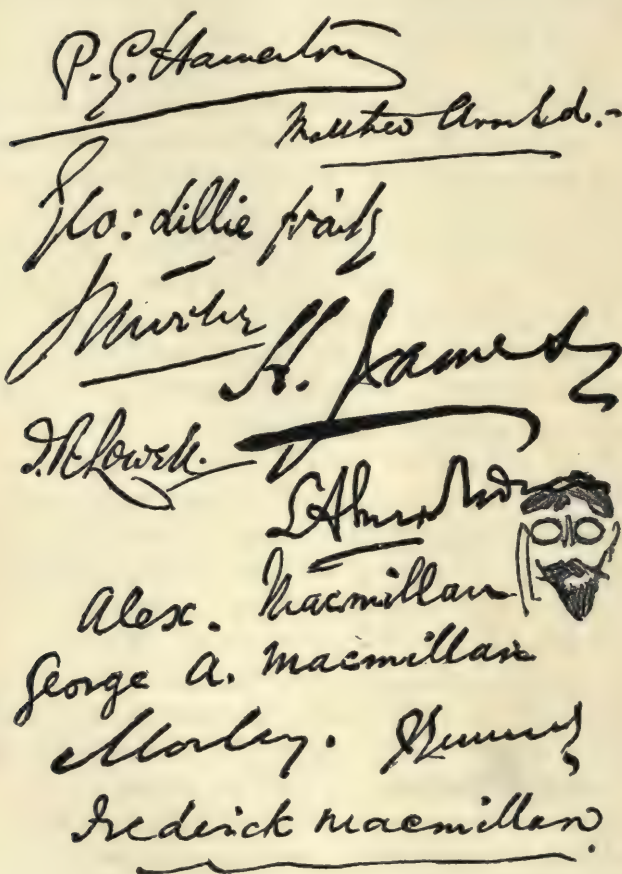 P. G. Hamerton
Matthew Arnold.
Geo: Lillie Craik
H. James
J. R. Lowell.
Alex. Macmillan
George A. Macmillan
Morley.
Frederick Macmillan.